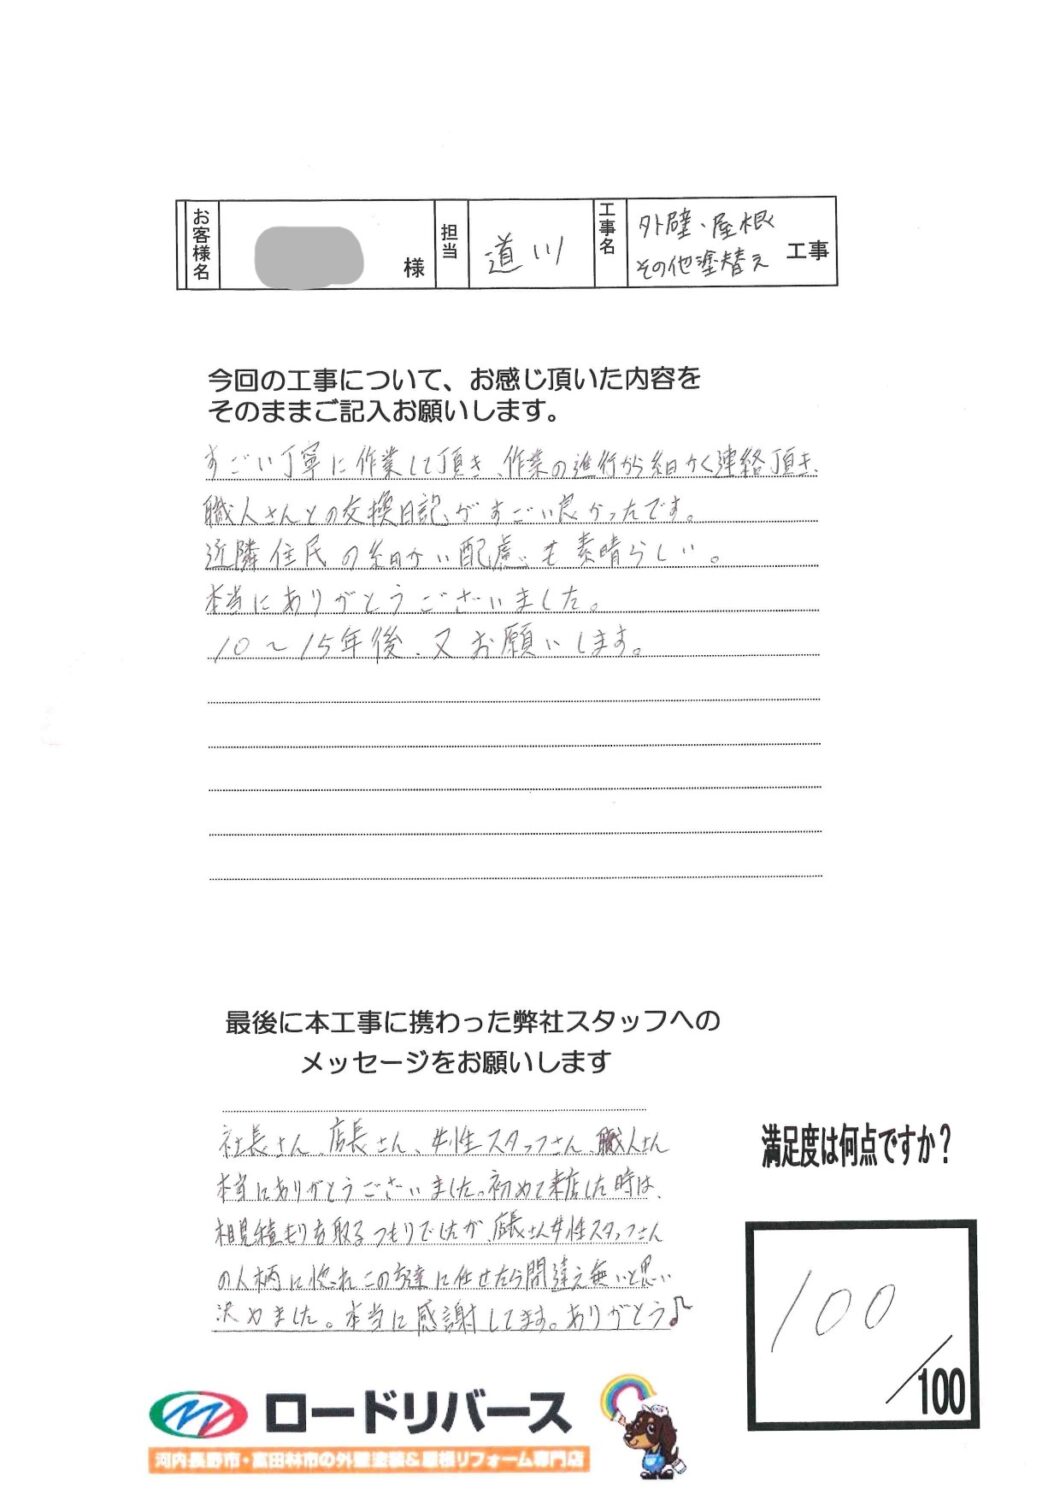 お客様名 様 担当 道川 工事名 外壁・屋根 その他塗替え 工事
今回の工事について、お感じ頂いた内容を
そのままご記入お願いします。
すごい丁寧に作業して頂き、作業の進行から細かく連絡頂き、
職人さんとの交換日記がすごい良かったです。
近隣住民の細かい配慮も素晴らしい。
本当にありがとうございました。
10〜15年後、又お願いします。
最後に本工事に携わった弊社スタッフへの
メッセージをお願いします
社長さん、店長さん、女性スタッフさん、職人さん
本当にありがとうございました。初めて来店した時は、
相見積もりを取るつもりでしたが、店長さん女性スタッフさん
の人柄に惚れこの方達に任せたら間違え無いと思い
決めました。本当に感謝してます。ありがとう♪
満足度は何点ですか？
100
/100
ロードリバース
河内長野市・富田林市の外壁塗装&屋根リフォーム専門店